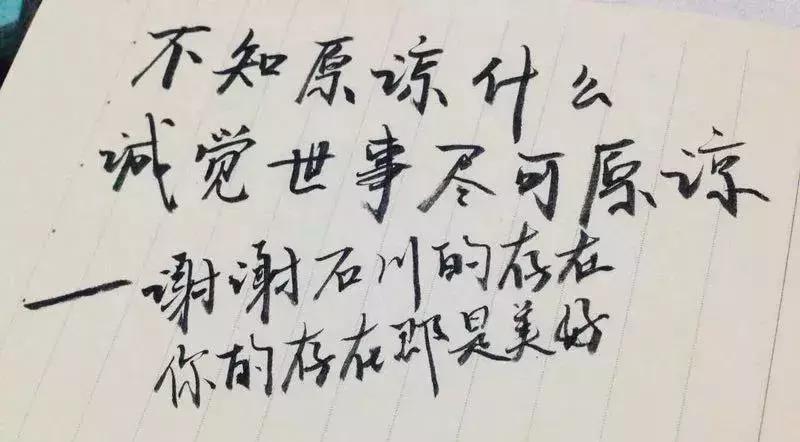 不知原谅什么
诚觉世事尽可原谅
——谢谢石川的存在
你的存在即是美好